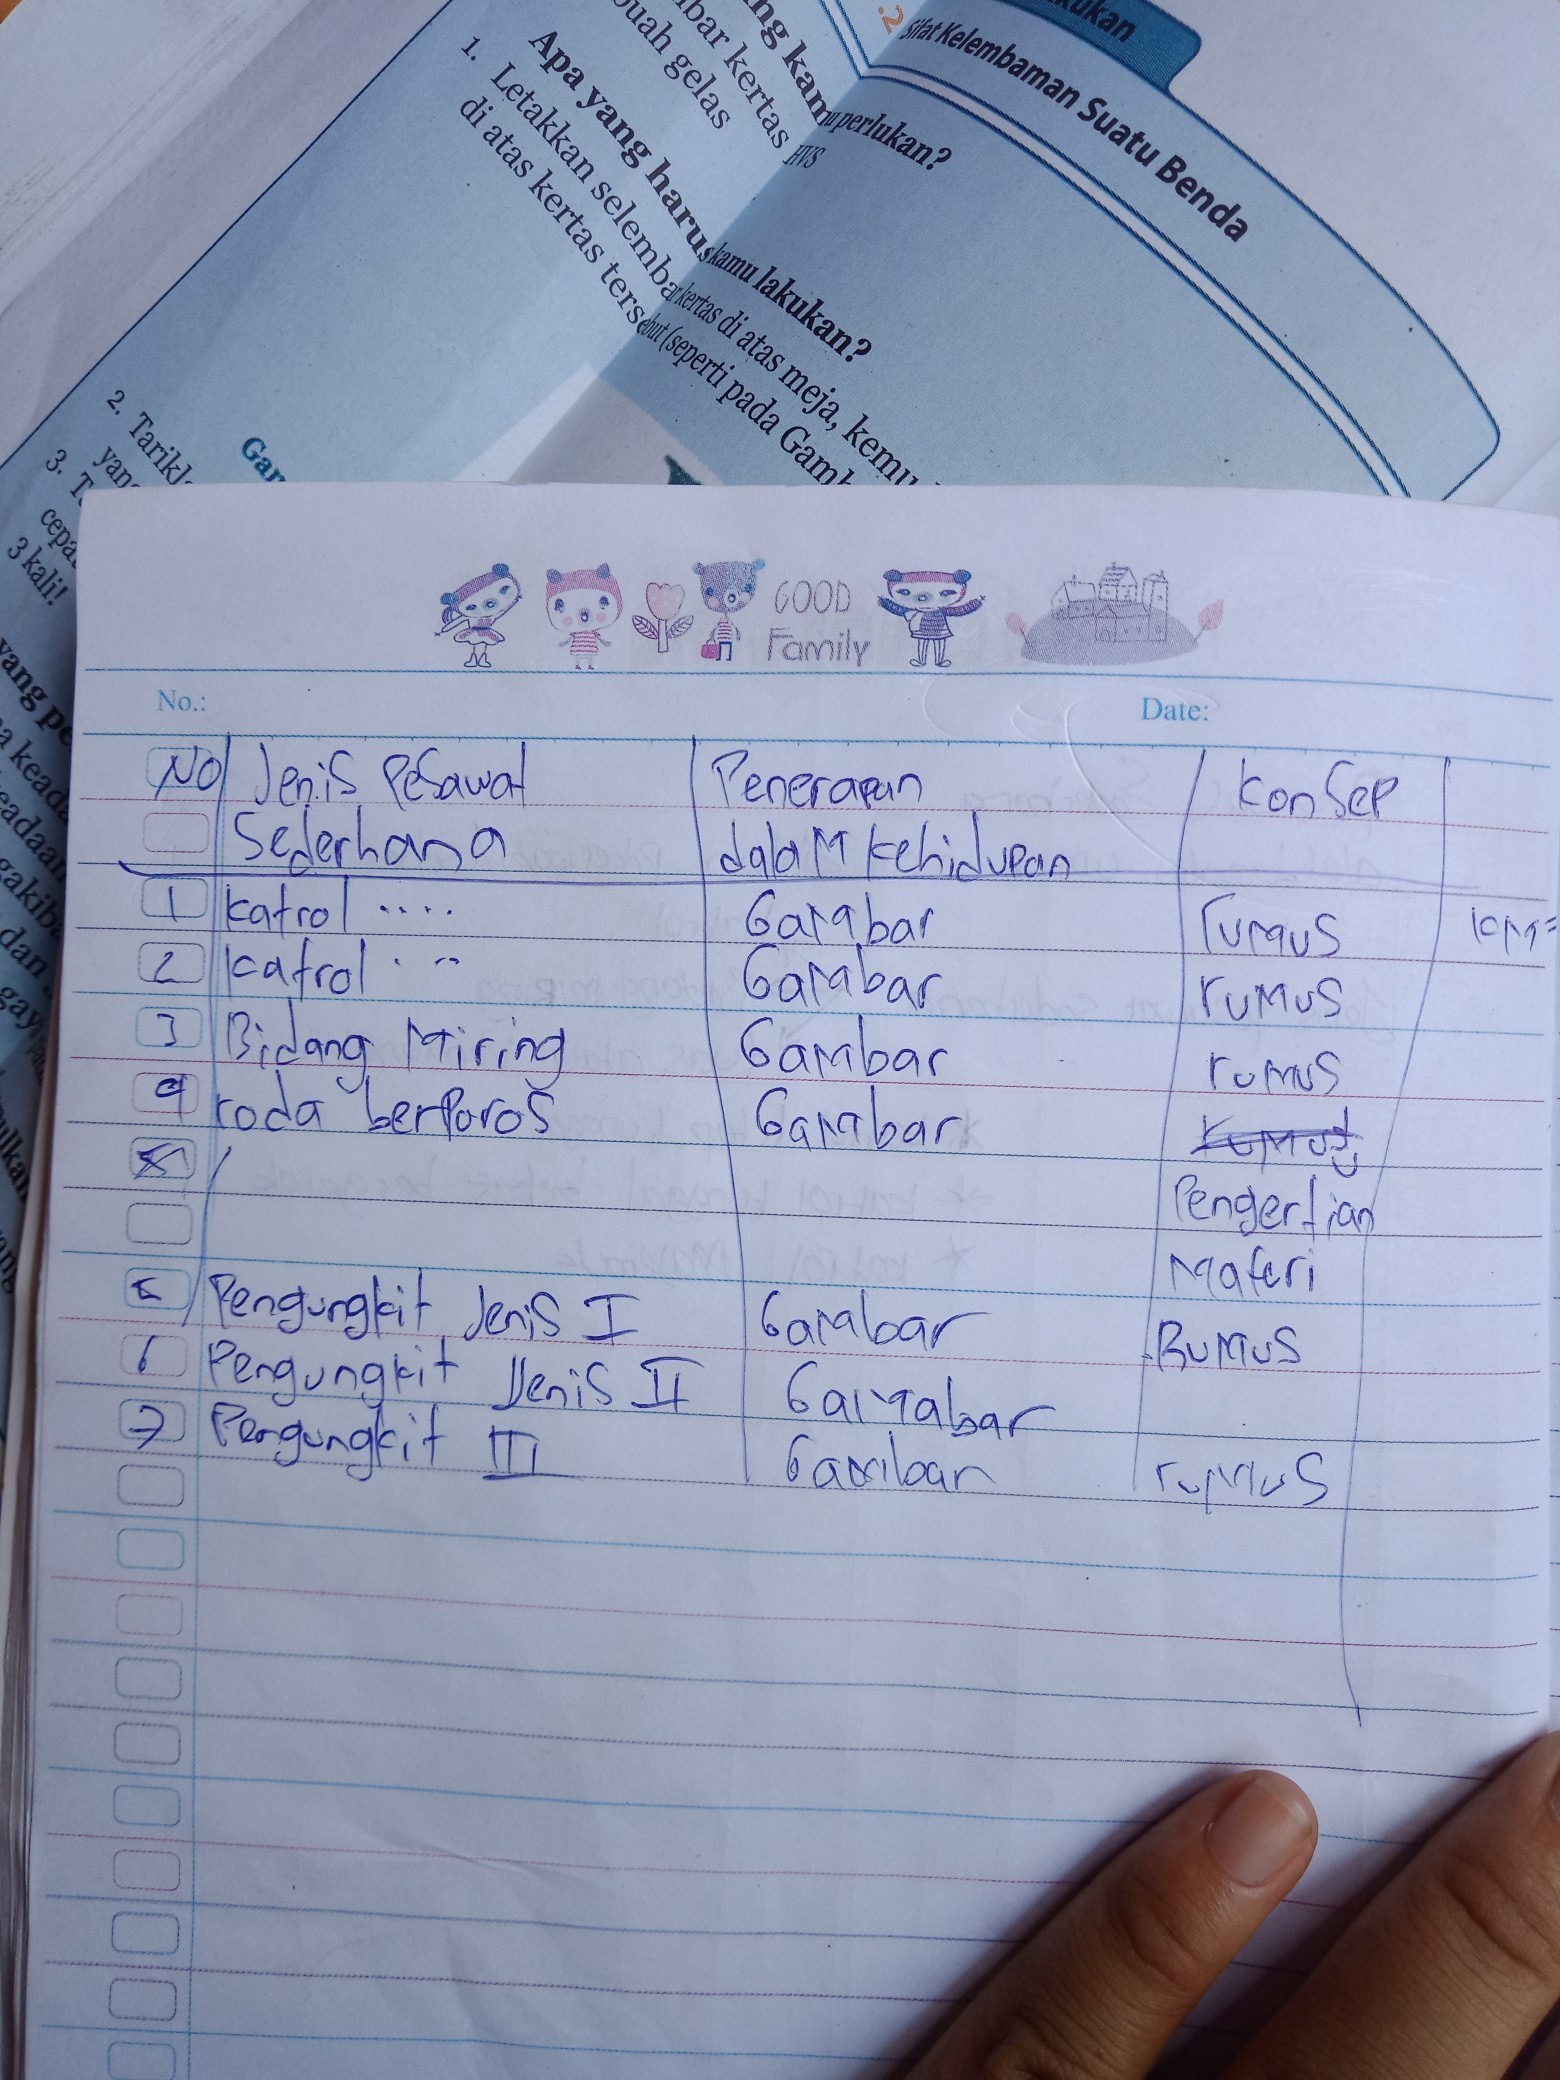 kukan
.2 Sifat Kelembaman Suatu Benda
ng kamu perlukan?
bar kertas HVS
buah gelas
Apa yang harus kamu lakukan?
1. Letakkan selembar kertas di atas meja, kemu
di atas kertas tersebut (seperti pada Gamb
Gam
2. Tarikl
yang
3. T
cepa
3 kali!
yang pe
GOOD
Family
No.:
Date:
No Jenis Pesawat Penerapan Konsep
Sederhana dalam kehidupan
1 Katrol .... Gambar rumus KM=
2 Katrol ... Gambar rumus
3 Bidang Miring Gambar rumus
4 roda berporos Gambar rumus
Pengertian
Materi
5 Pengungkit Jenis I Gambar Rumus
6 Pengungkit Jenis II Gambar
7 Pengungkit III Gambar rumus